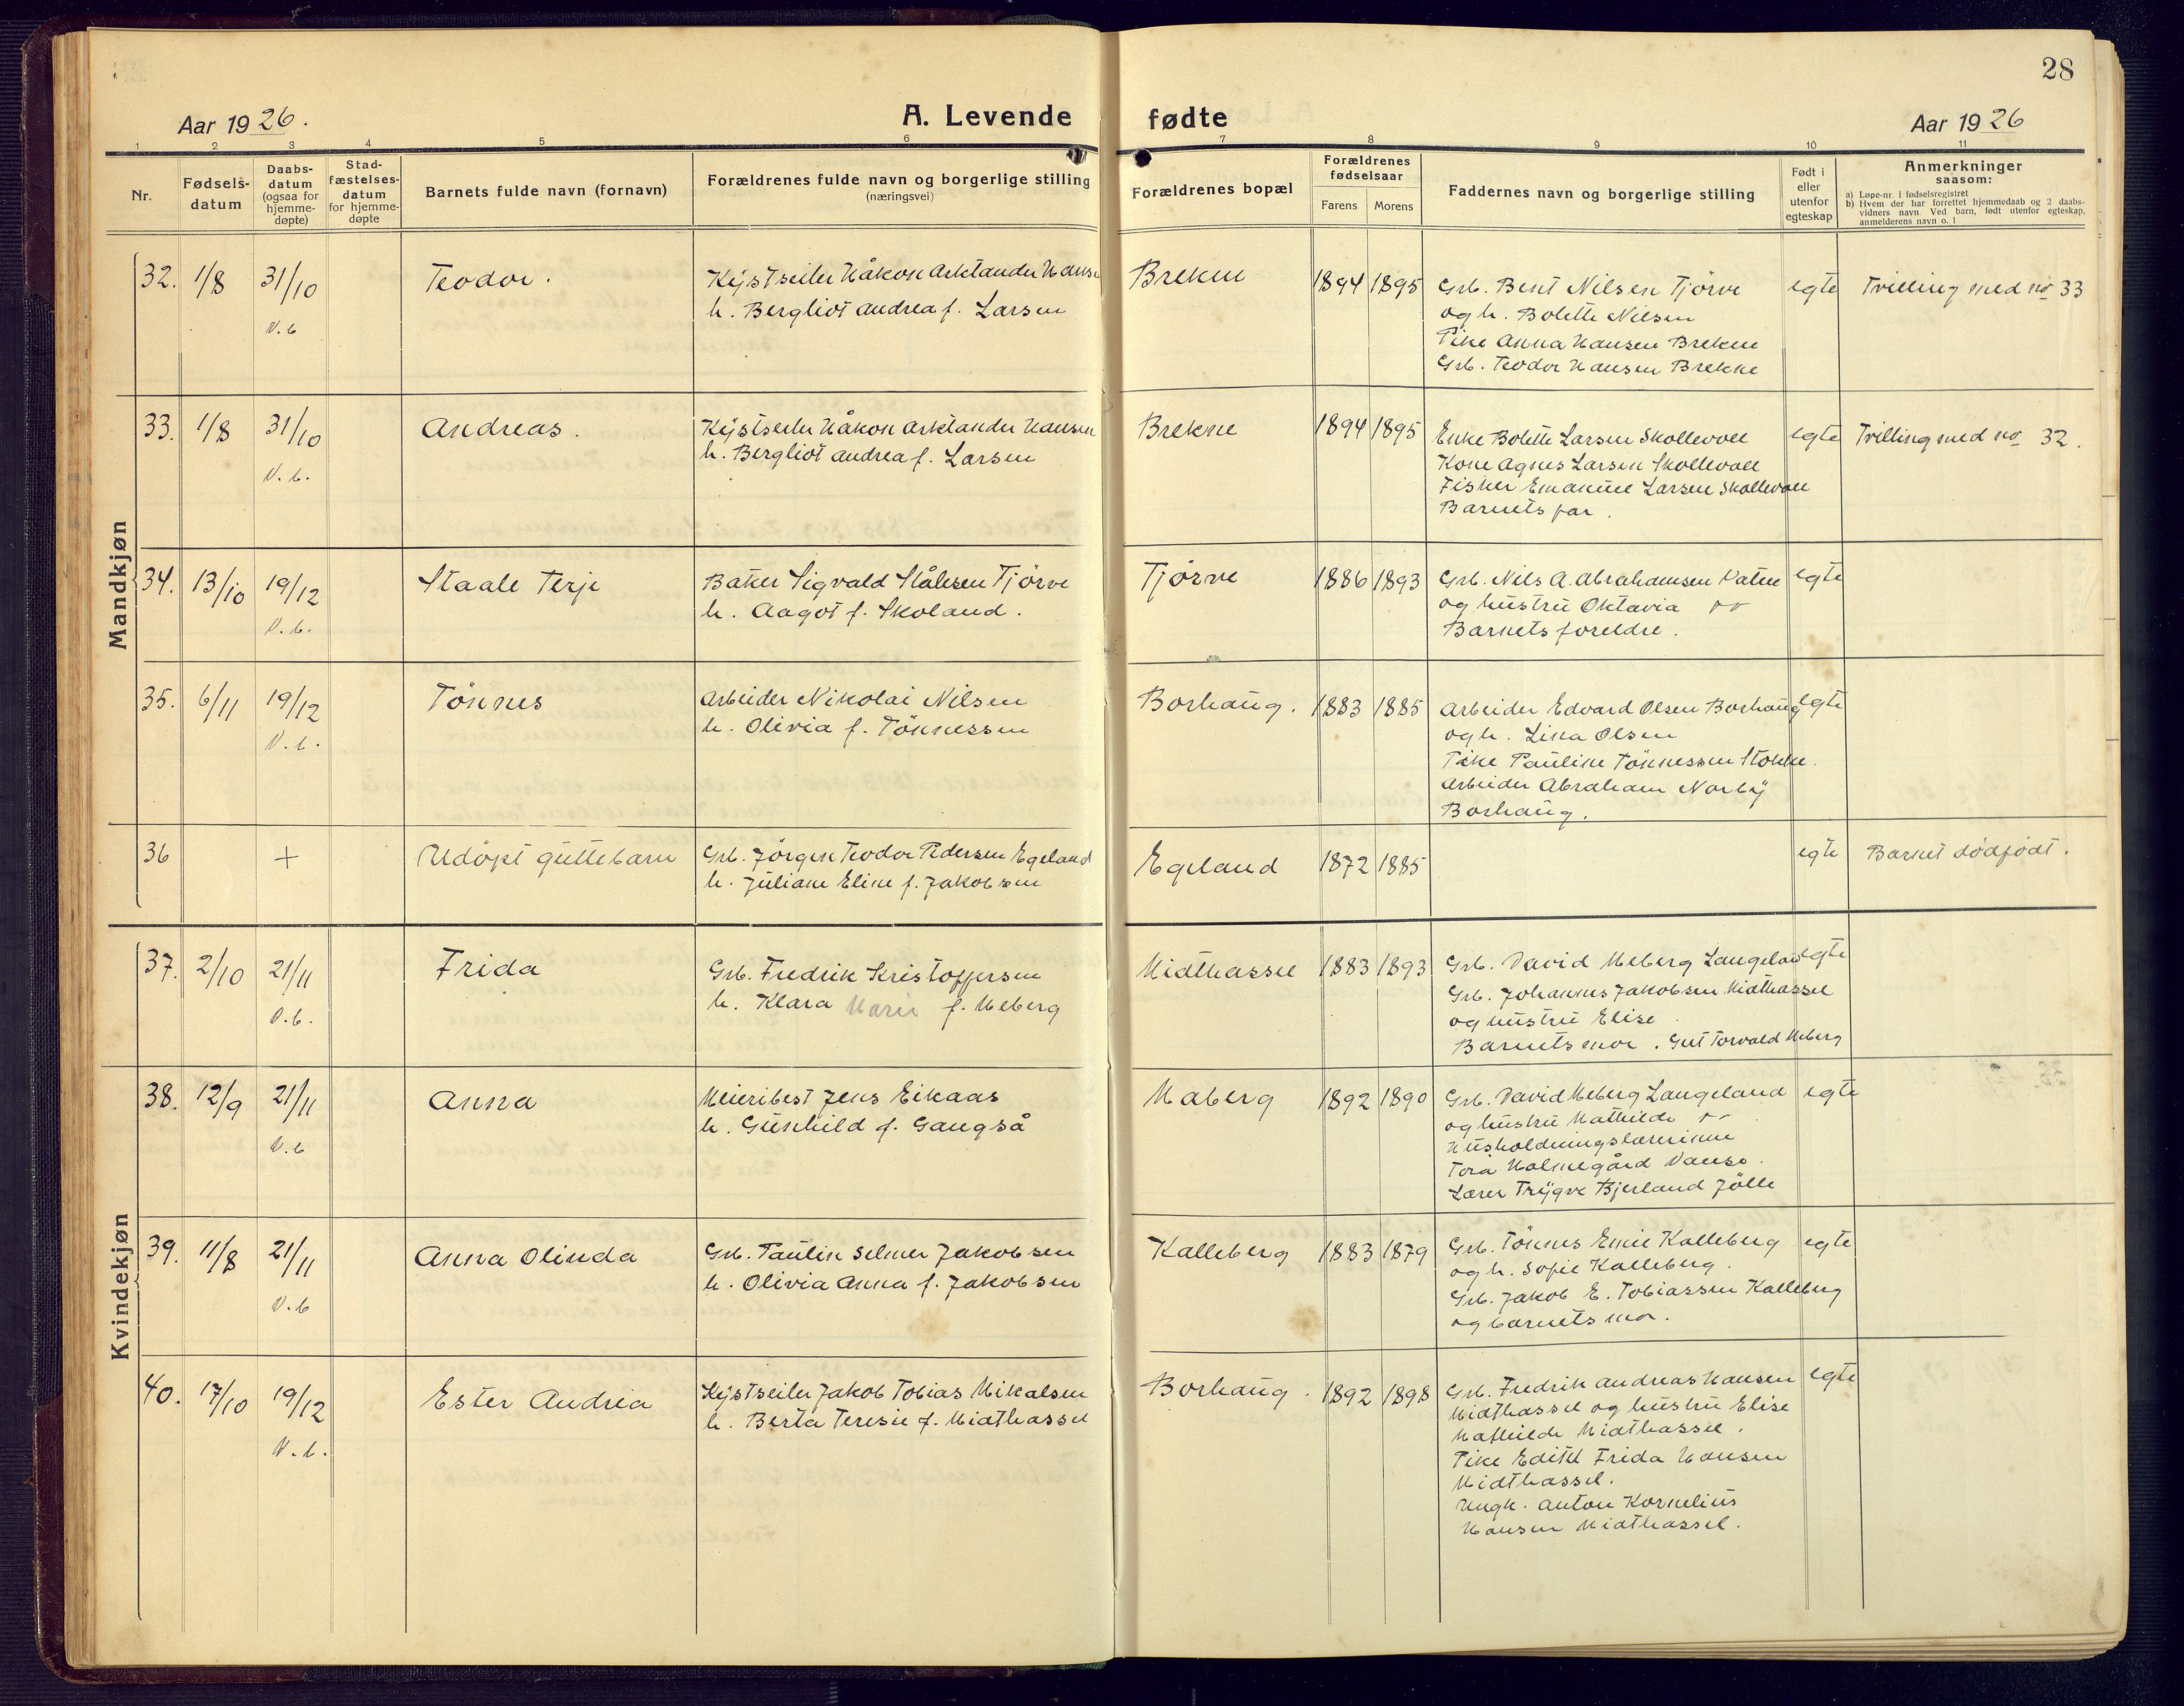 28
Aar 1926.
A. Levende fødte
Aar 1926
1 2 3 4 5 6 7 8 9 10 11
Nr.
Fødsels-
datum
Daabs-
datum
(ogsaa for
hjemme-
døpte)
Stad-
fæstelses-
datum
for hjemme-
døpte
Barnets fulde navn (fornavn)
Forældrenes fulde navn og borgerlige stilling
(næringsvei)
Forældrenes bopæl
Forældrenes
fødselsaar
Farens Morens
Faddernes navn og borgerlige stilling
Født i
eller
utenfor
egteskap
Anmerkninger
saasom:
a) Løpe-nr. i fødselsregistret
b) Hvem der har forrettet hjemmedaab og 2 daabs-
vidners navn. Ved barn, født utenfor egteskap,
anmelderens navn o. l
Mandkjøn
32. 1/8 31/10 Teodor.
V. k
Kystseiler Håkon Arktander Hansen
h. Bergliot Andrea f. Larsen
Brekne 1894 1895
Grb. Bent Nilsen Tjörve
og h. Bolette Nilsen
Pike Anna Hansen Brekne
Grb. Teodor Hansen Brekke
egte Tvilling med no 33
33. 1/8 31/10 Andreas.
V. k.
Kystseiler Håkon Arktander Hansen
h. Bergliot Andrea f. Larsen
Brekne 1894 1895
Enke Bolette Larsen Skollevoll
Kone Agnes Larsen Skollevoll
Fisker Emanuel Larsen Skollevoll
Barnets far.
egte Tvilling med no 32.
34. 13/10 19/12 Staale Terje
V. k.
Baker Sigvald Stålesen Tjörve
h. Aagot f. Skoland.
Tjörve 1886 1893
Grb. Nils A. Abrahamsen Vatne
og hustru Oktavia
Barnets foreldre.
egte
35. 6/11 19/12 Tönnes
V. k.
Arbeider Nikolai Nilsen
h. Olivia f. Tönnessen
Borhaug. 1883 1885
Arbeider Edvard Olsen Borhaug
og h. Lina Olsen
Pike Pauline Tönnessen Stokke.
Arbeider Abraham Norby
Borhaug.
egte
36 + Udöpt guttebarn
Grb. Jörgen Teodor Pedersen Egeland
h. Juliane Eline f. Jakobsen
Egeland 1872 1885 egte Barnet dödfödt.
Kvindekjøn
37. 2/10 21/11 Frida
V. k.
Grb. Fredrik Kristoffersen
h. Klara Marie f. Meberg
Midthassel 1883 1893
Grb. David Meberg Langeland
Grb. Johannes Jakobsen Midthassel
og hustru Elise
Barnets mor. Gut Torvald Meberg
egte
38. 12/9 21/11 Anna
V. k
Meieribest Jens Eikaas
h. Gunhild f. Gangså
Maberg 1892 1890
Grb. David Meberg Langeland
og hustru Mathilde
Husholdningslærerinne
Tora Holmegård Vanse.
Lærer Trygve Bjerland Jölle
egte
39. 11/8 21/11 Anna Olinda
V. k
Grb. Paulin Selmer Jakobsen
h. Olivia Anna f. Jakobsen
Kalleberg 1883 1879
Grb. Tönnes Emil Kalleberg
og h. Sofie Kalleberg.
Grb. Jakob E. Tobiassen Kalleberg
og barnets mor.
egte
40. 17/10 19/12 Ester Andrea
V. k.
Kystseiler Jakob Tobias Mikalsen
h. Berta Teresie f. Midthassel
Borhaug. 1892 1898
Grb. Fredrik Andreas Hansen
Midthassel og hustru Elise
Mathilde Midthassel.
Pike Edith Frida Hansen
Midthassel.
Ungk. Anton Kornelius
Hansen Midthassel.
egte